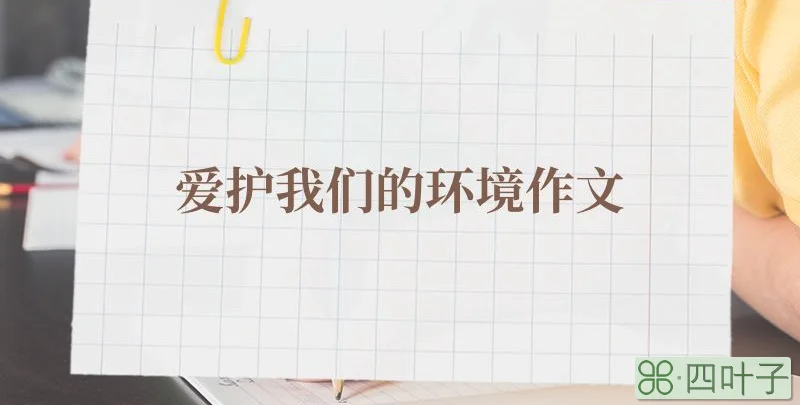 爱护我们的环境作文
四叶子